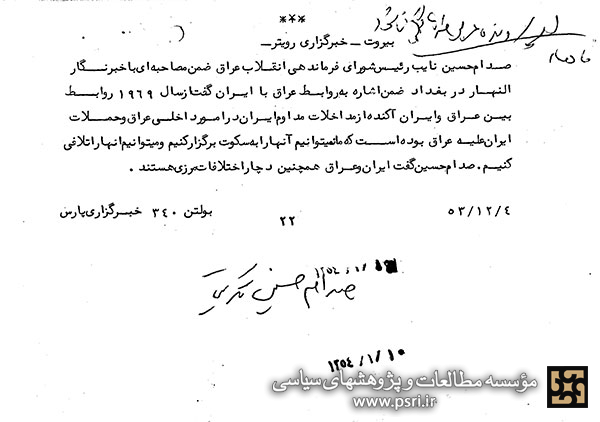 ***
بیروت ـ خبرگزاری رویترـ
صدام حسین نایب رئیس شورای فرماندهی انقلاب عراق ضمن مصاحبه ای با خبرنگار
النهار در بغداد ضمن اشاره به روابط عراق با ایران گفت از سال ۱۹۶۹ روابط
بین عراق و ایران آکنده از مداخلات مداوم ایران در امور داخلی عراق و حملات
ایران علیه عراق بوده است که ما نمیتوانیم آنها را به سکوت برگزار کنیم و میتوانیم انها را تلافی
کنیم . صدام حسین گفت ایران و عراق همچنین دچار اختلافات مرزی هستند .
۵۳/۱۲/۴
۲۲
بولتن ۳۴۰ خبرگزاری پارس
صدام حسین تکریتی
۱۳۵۴/۱/۱۰
مؤسسه مطالعات و پژوهشهای سیاسی
www.psri.ir